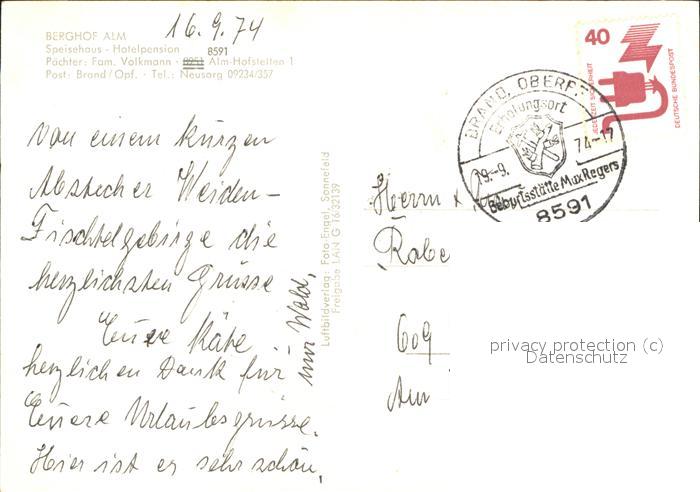 16.9.74
BERGHOF ALM
Speisehaus - Hotelpension
8591
Pächter: Fam. Volkmann - 8951 Alm-Hofstetten 1
Post: Brand/Opf. - Tel.: Neusorg 09234/357
Von einem kurzen
Abstecher Weiden-
Fischtelgebirge die
herzlichsten Grüsse
Euere Käte
herzlichen Dank für
Euere Urlaubsgrüsse.
Hier ist es sehr schön,
nur Wald.
Luftbildverlag: Foto-Engel, Sonnefeld
Freigabe LAN G 16/32139
40
JEDERZEIT SICHERHEIT
DEUTSCHE BUNDESPOST
BRAND, OBERPF.
Erholungsort
74-17
Geburtsstätte Max Regers
8591
Herrn
Rabe
609
Am
privacy protection (c)
Datenschutz